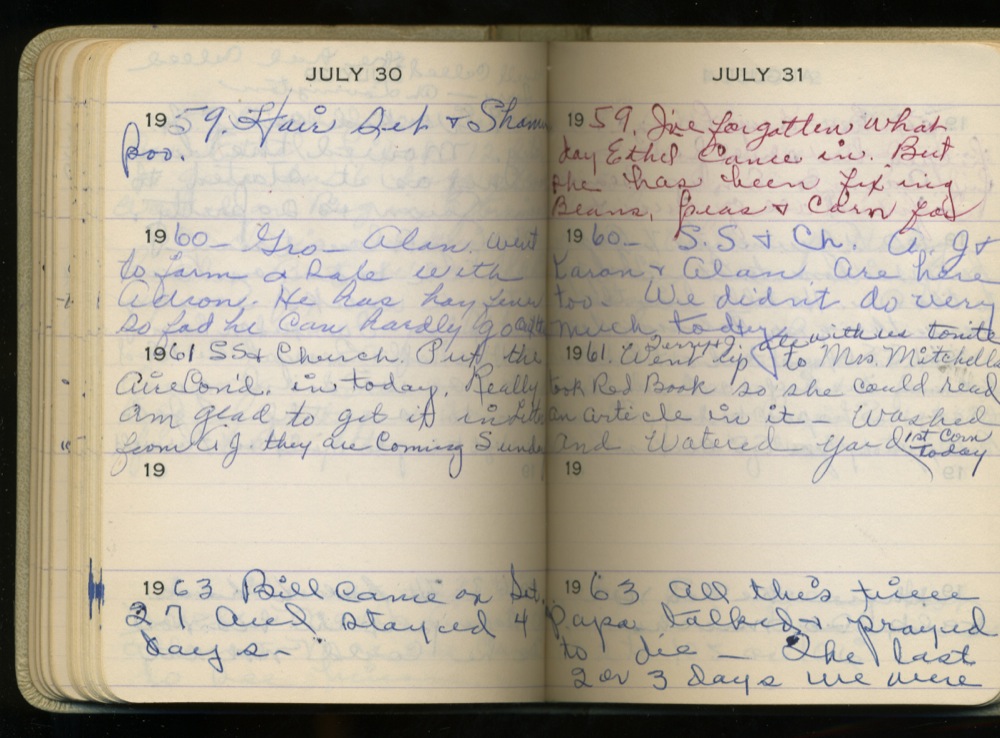 JULY 30
1959. Hair Set & Sham
poo.
1960- Gro- Alan went
to farm & Lake with
Adron. He has hay fever
so bad he can hardly go
1961 SS & Church. Put the
Aire Con'd. in today. Really
am glad to get it in
from A J. they are Coming Sunda
19
1963 Bill came on Sat.
27 and stayed 4
days-
JULY 31
1959. I've forgotten what
day Ethel came in. But
she has been fixing
Beans, peas & Corn for
1960- S.S & Ch. A. J &
Karan & Alan are here
too- We didn't do very
much today
Jerry & J ate with us tonite
1961. Went up to Mrs Mitchells
took Red Book so she could read
an article in it- Washed
and Watered yard
1st Corn
today
19
1963 All this time
Papa talked & prayed
to die- The last
2 or 3 days we were